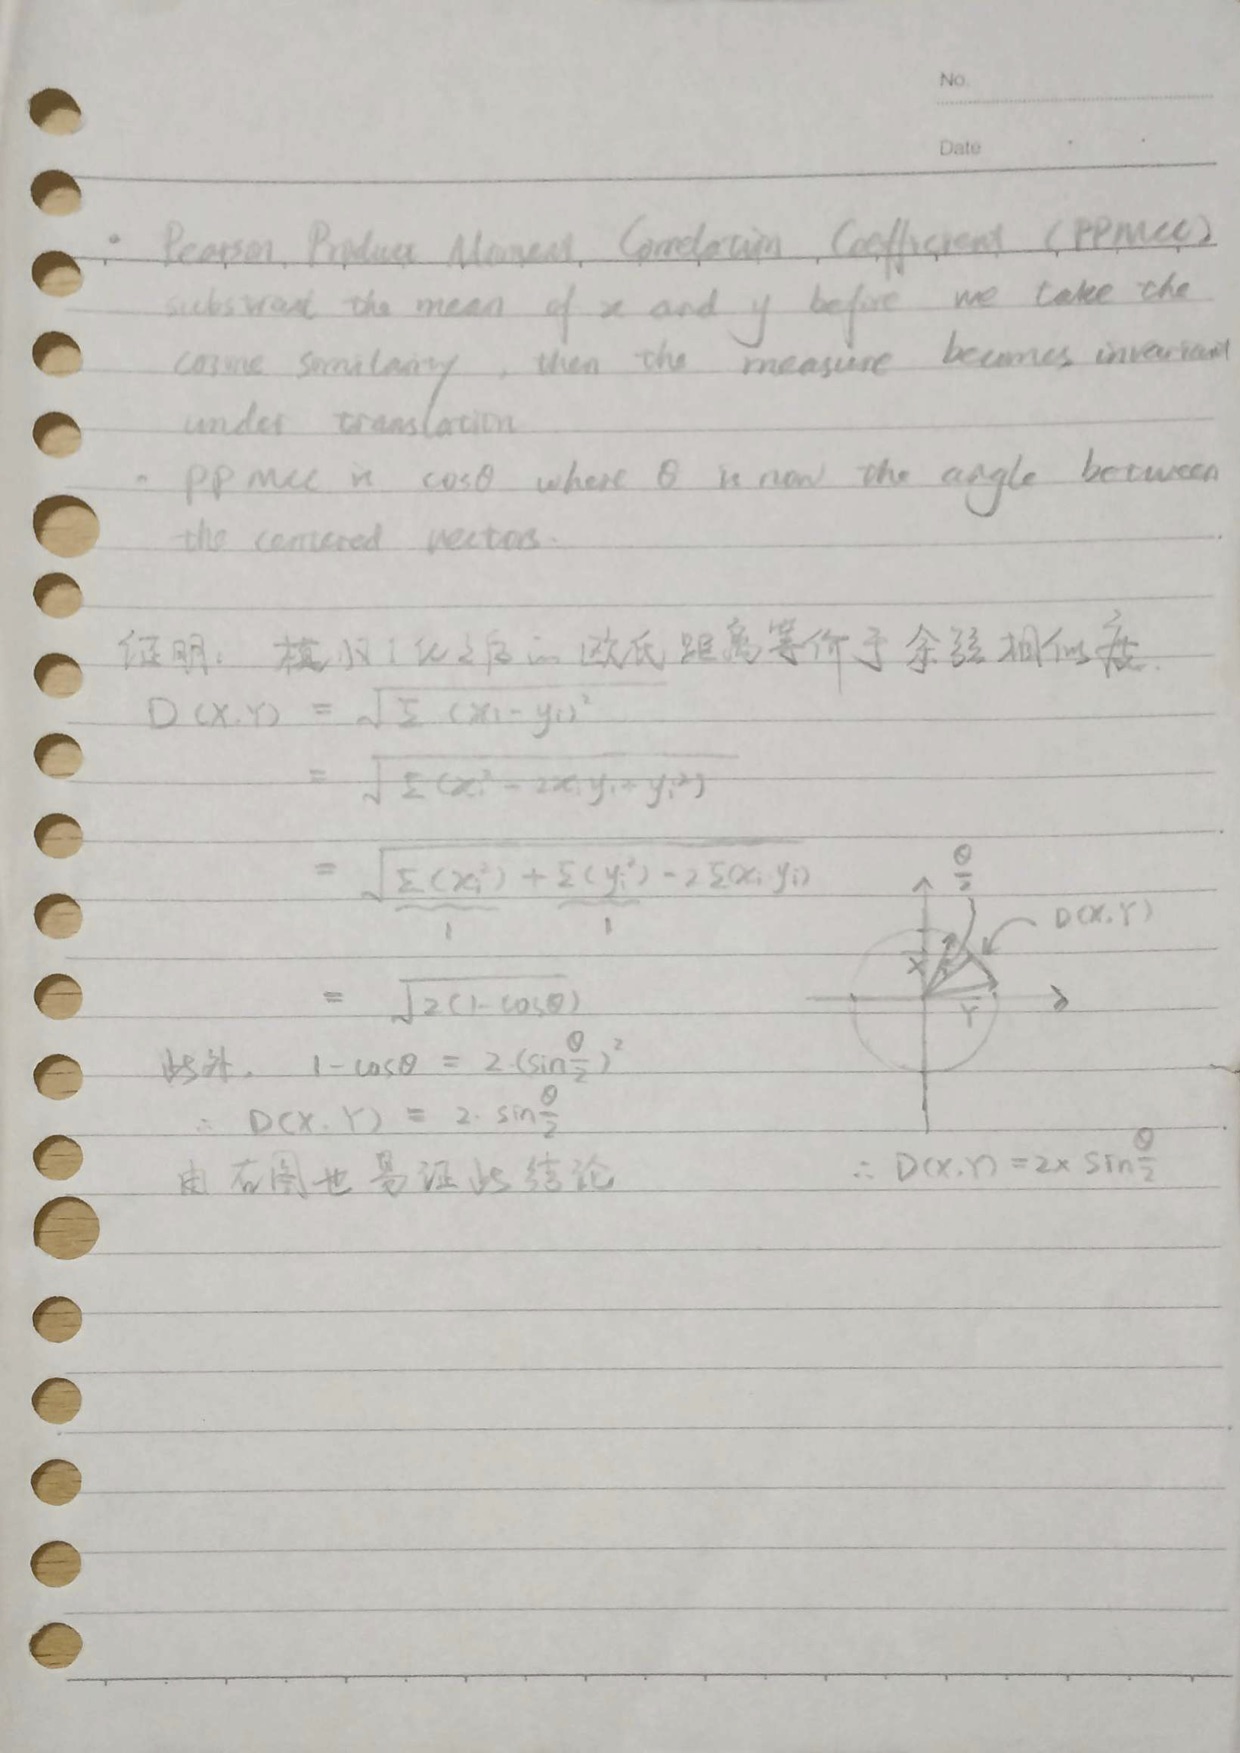 No.
Date
· Pearson Product Moment Correlation Coefficient (PPMCC)
substract the mean of x and y before we take the
cosine similarity, then the measure becomes invariant
under translation
· PPMCC is cosθ where θ is now the angle between
the centered vectors.
证明: 模归1化之后 欧氏距离等价于余弦相似度.
D(X,Y) = √Σ(xi-yi)²
= √Σ(xi²-2xiyi+yi²)
= √Σ(xi²)+Σ(yi²)-2Σ(xi·yi)
1 1
= √2(1-cosθ)
θ/2
D(X,Y)
X
Y
此外, 1-cosθ = 2·(sinθ/2)²
∴ D(X,Y) = 2·sinθ/2
由右图也易证此结论
∴ D(X,Y)=2×sinθ/2